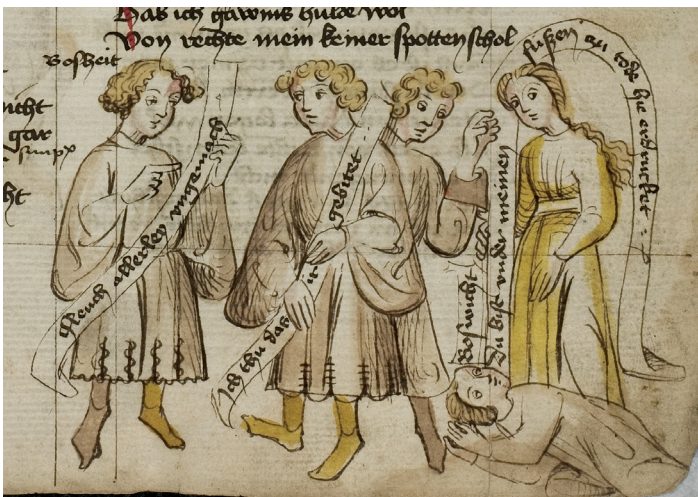 Das ich gawmß hulde wol
Von rechte mein keiner spotten schol
Bosheit
nicht
gar
ht
fleuch allerley vngemach
Ich thu das ir gebitet
Boswicht
Du bist vnder meinen
fußen zu tode hie erdrucket